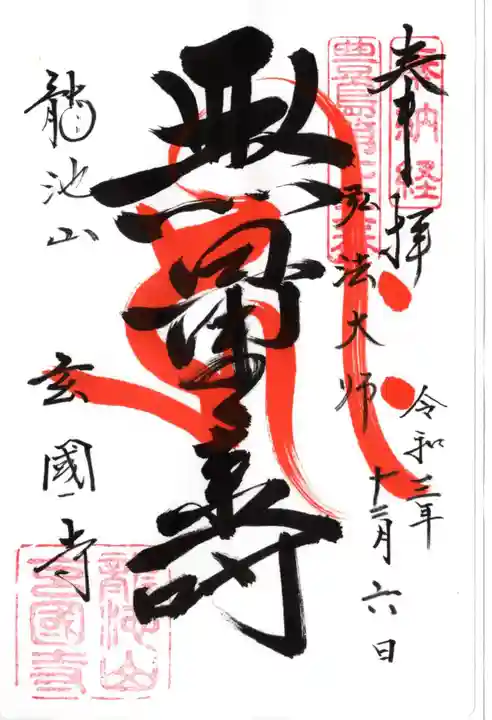 奉拝
奉納経
弘法大師
令和三年
十二月六日
無量壽
龍池山
玄國寺
龍池山
玄國寺